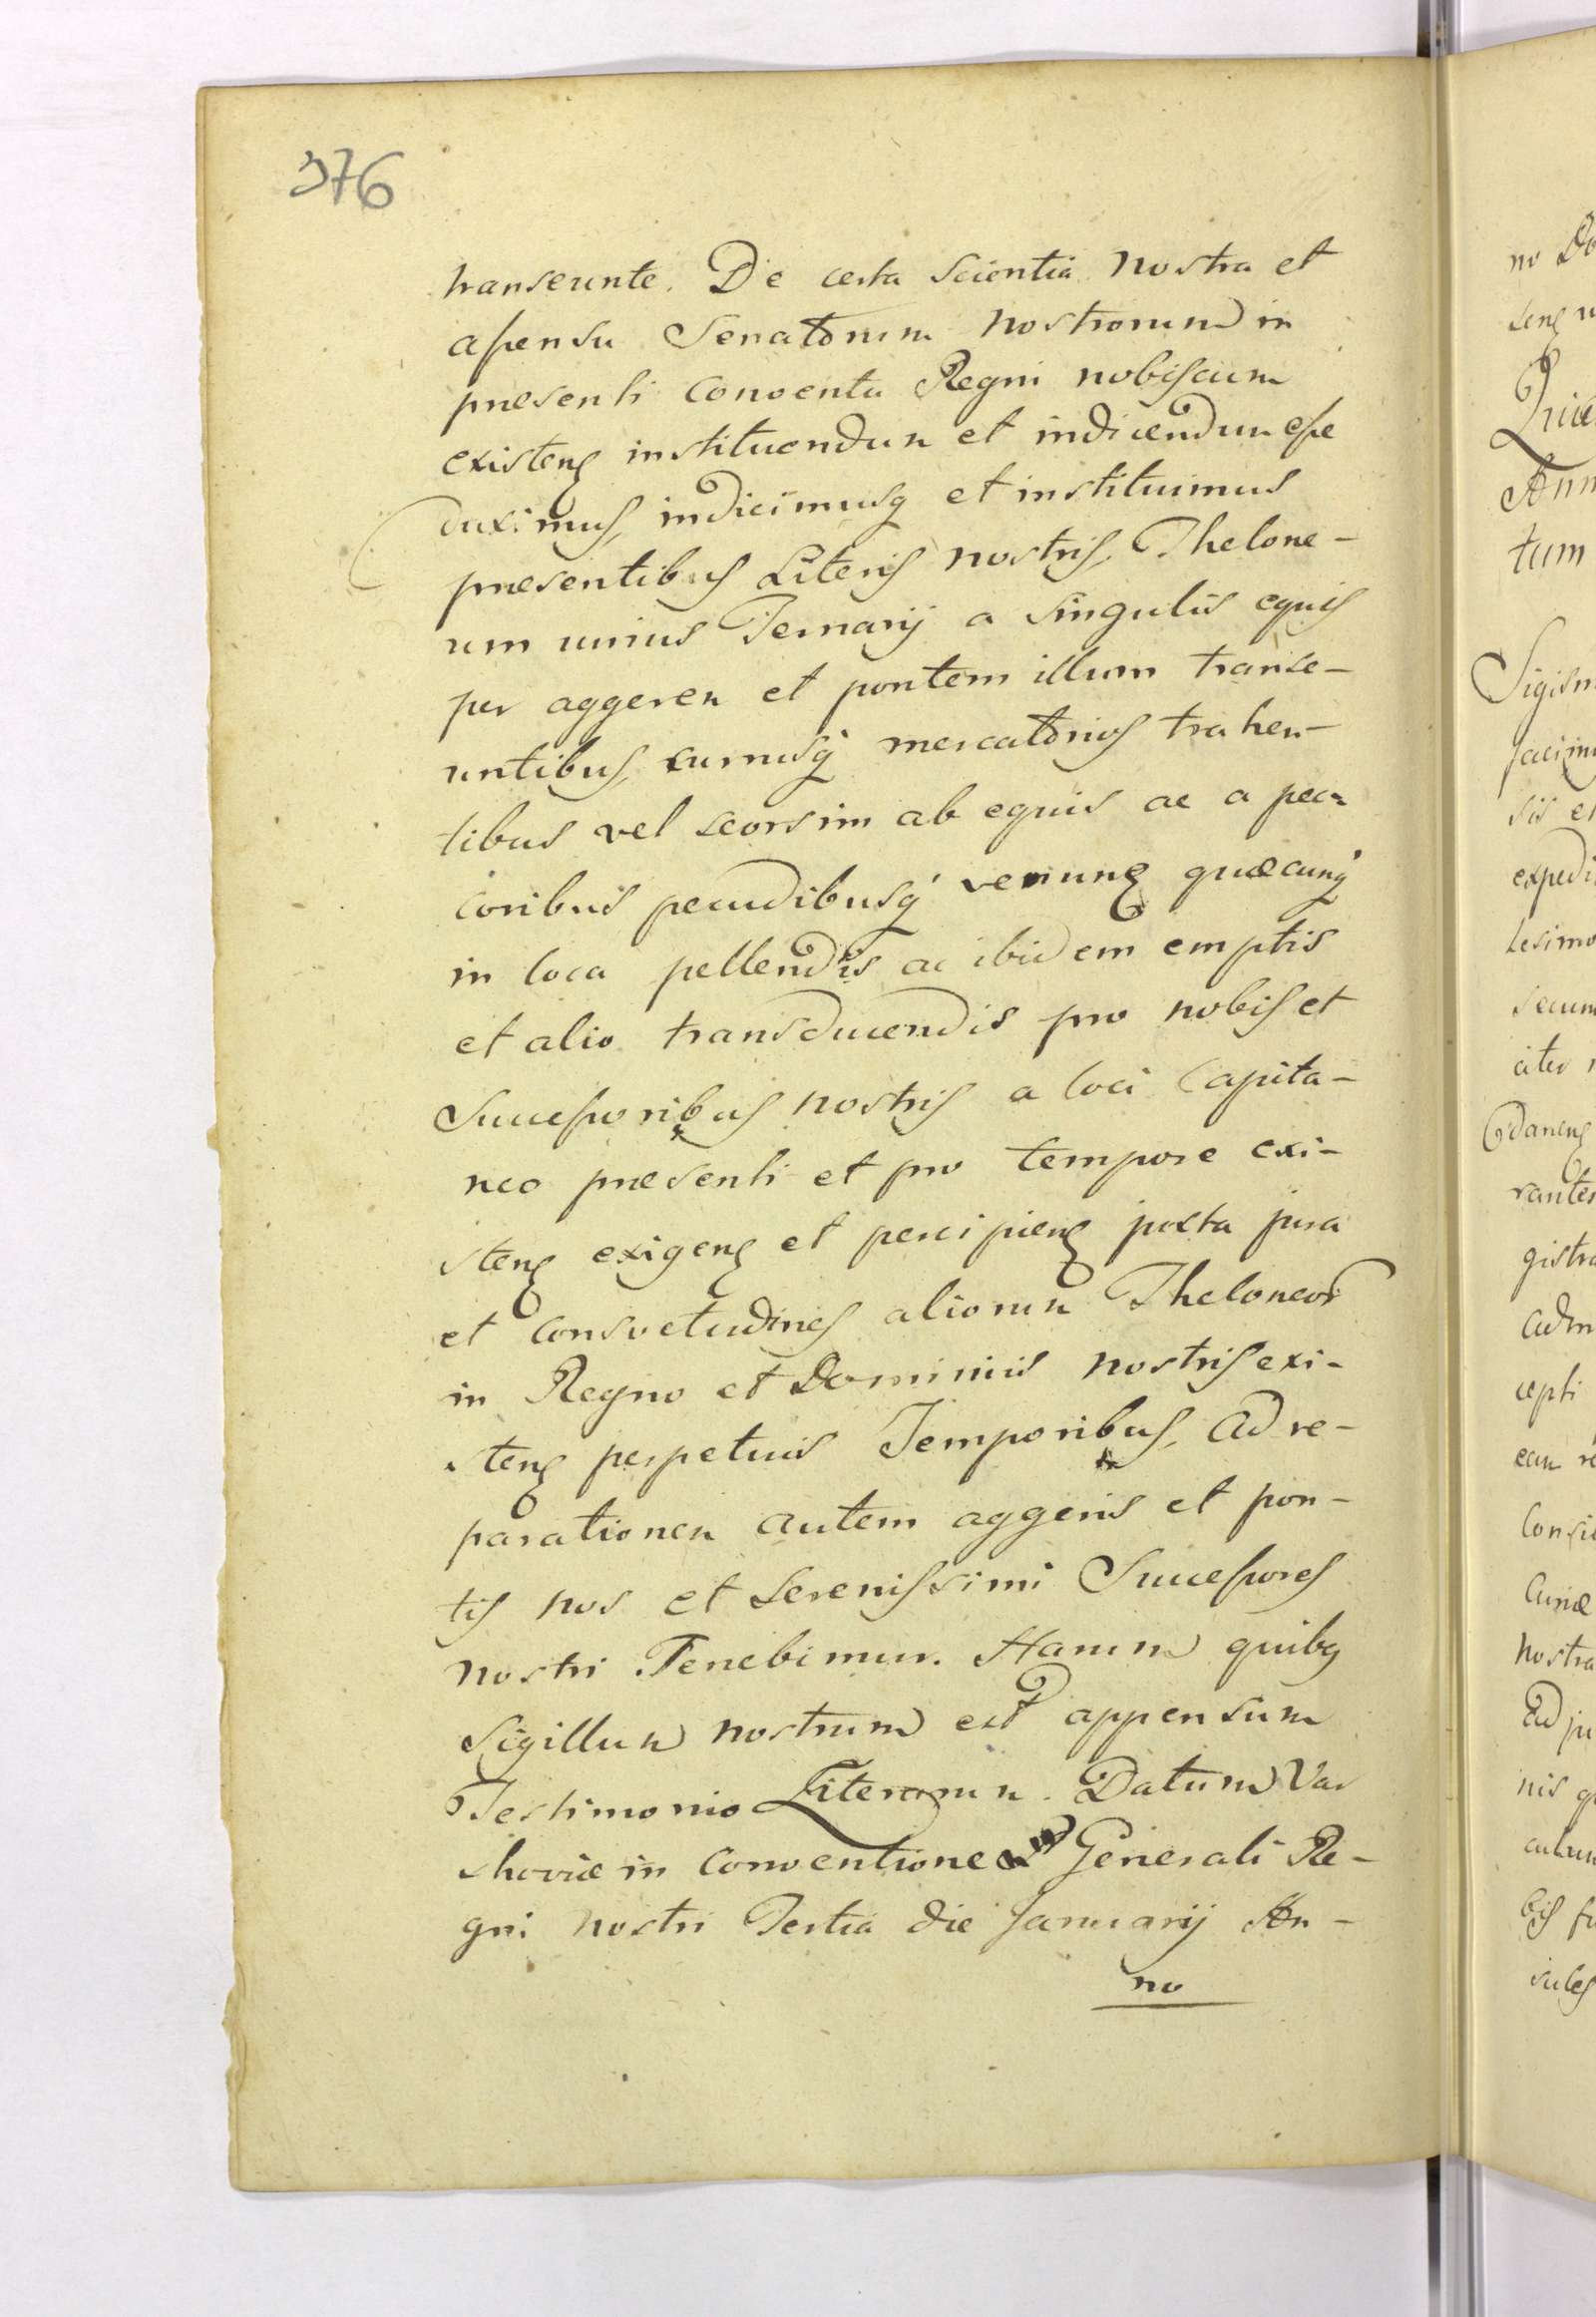 376
transeunte. De certa scientia nostra et
assensu Senatorum nostrorum in
præsenti Conventu Regni nobiscum
existenꝭ instituendum et indicendum esse
duximus, indicimusq et instituimus
præsentibus Literis nostris, Thelone-
um unius Ternarij a singulis equis
per aggerem et pontem illum transe-
untibus, currusq mercatorios trahen-
tibus vel seorsim ab equis ac a pec-
coribus pecudibusq venunꝭ quæcunq
in loca pellendis ac ibidem emptis
et alio transducendis pro nobis et
Successoribus nostris a loci Capita-
neo præsenti et pro tempore exi-
stenꝭ exigenꝭ et percipienꝭ juxta jura
et consvetudines aliorum Theloneor
in Regno et Dominiis nostris exi-
stenꝭ perpetuis Temporibus, Ad re-
parationem autem aggeris et pon-
tis nos et Serenissimi Successores
nostri Tenebimur. Harum quibꝯ
Sigillum nostrum est appensum
Testimonio Literarum. Datum Var
shoviæ in Conventione Generali Re-
gni nostri Tertia die Januarij An-
no
no Do
senꝭ
Trice
Ann
tum
Sigism
sis et
expedi
lesimo
secun
citer
rantes
gistra
Adm
cepti
eam re
Consi
Curiæ
nostra
Ad ju
nis q